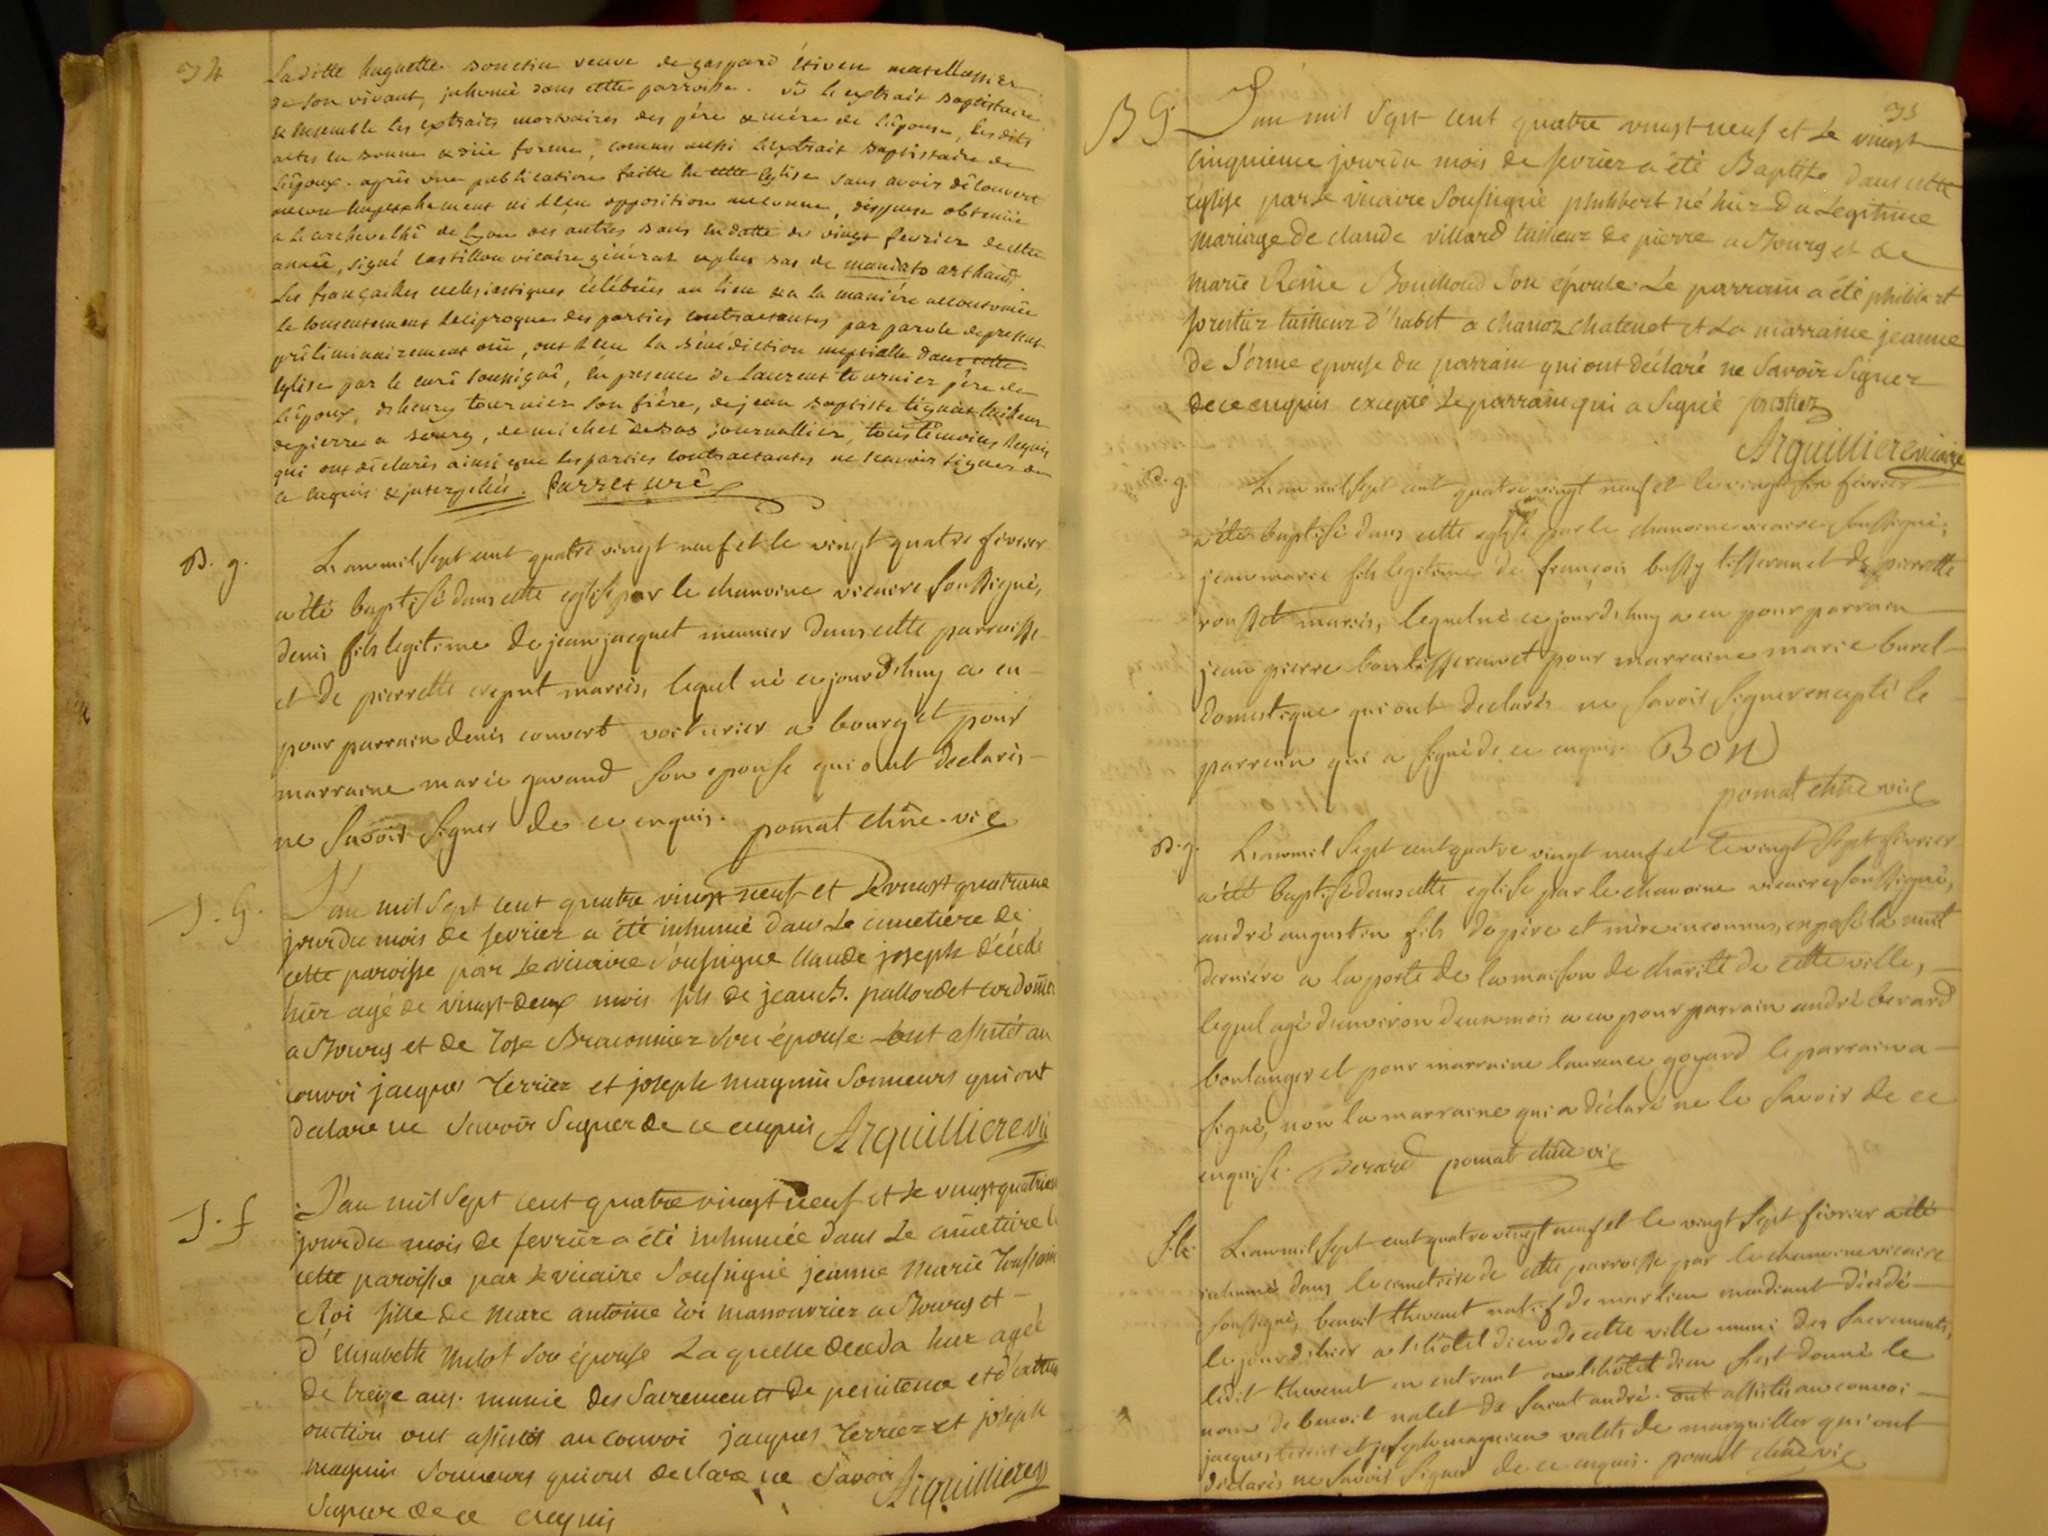 34
Laditte huguette veuve de gaspard
de son vivant, inhumé dans cette parroisse. vû le extrait Baptistaire
& ensemble les extraits mortuaires des père & mère de l'épouse, les dits
actes en bonne & düe forme, comme aussi l'extrait Baptistaire de
l'époux. après une publication faitte en cette église sans avoir découvert
aucun empechement ni opposition aucunne, dispense obtenüe
a Larchevêché de Lyon des autres Bans en datte du vingt fevrier de cette
année, signé Castillon vicaire général & plus bas de mandato
Les fiançailles ecclesiastiques célébrées au lieu & a la manière accoutumée
le consentement réciproque des parties contractantes par parole de present
préliminairement oui, ont la Bénédiction nuptialle dans cette
église par le curé soussigné, en presence de Laurent tournier père de
l'époux, de henry tournier son frère, de jean Baptiste tailleur
de pierre a Bourg, de michel journallier, tous témoins requis
qui ont déclarés ainsi que les parties contractantes ne scavoir signer de
ce enquis & interpelés. curé
B. g. L'an mil sept cent quatre vingt neuf et le vingt quatre fevrier
a été baptisé dans cette eglise par le chanoine vicaire soussigné,
denis fils legitime de jean jacquet meunier dans cette parroisse
et de pierrette creput mariés, lequel né ce jourd'huy a eu
pour parrain denis convert voiturier a bourg et pour
marraine marie gavand son epouse qui ont declarés
ne savoir signer de ce enquis. pomat chne. vic
J. G. L'an mil sept cent quatre vingt neuf et le vingt quatrieme
jour du mois de fevrier a été inhumé dans Le cimetière de
cette paroisse par Le vicaire Soussigné Claude joseph décédé
hier agé de vingt deux mois fils de jean B. pallordet cordonnier
a Bourg et de Rose Braconnier Son épouse ont assisté au
convoi jacques Terrier et joseph magnin Sonneurs qui ont
declaré ne Savoir Signer de ce enquis Arquilliere vic
J. f L'an mil sept cent quatre vingt neuf et le vingt quatrieme
jour du mois de fevrier a été inhumée dans Le cimetière de
cette paroisse par Le vicaire Soussigné jeanne Marie
Roi fille de Marc antoine Roi manouvrier a Bourg et
d'Elisabette Son épouse Laquelle deceda hier agée
de treize ans. munie des Sacrements de penitence et d'extreme
onction ont assistés au convoi jacques Terrier et joseph
magnin Sonneurs qui ont declaré ne Savoir Arquilliere vic
Signer de ce enquis
35
B G. L'an mil Sept cent quatre vingt neuf et Le vingt
cinquieme jour du mois de fevrier a été Baptisé dans cette
église par Le vicaire Soussigné philibert né hier du Legitime
mariage de claude villard tailleur de pierre a Bourg et de
marie Reine Bouilloud Son épouse. Le parrain a été philibert
tailleur d'habit a chanoz chatenet et La marraine jeanne
de L'orme epouse du parrain qui ont déclaré ne Savoir Signer
de ce enquis excepté Le parrain qui a Signé
Arquilliere vicaire
B. g. L'an mil sept cent quatre vingt neuf et le vingt six fevrier
a été baptisé dans cette eglise par le chanoine vicaire soussigné,
jean marie fils legitime de françois bussy tisseran et de pierrette
rousset mariés, lequel né ce jourd'huy a eu pour parrain
jean pierre bon tisseran et pour marraine marie burel
domestique qui ont declarés ne savoir signer excepté le
parrain qui a signé de ce enquis. BON
pomat chne vic
B. g. L'an mil sept cent quatre vingt neuf et le vingt sept fevrier
a été baptisé dans cette eglise par le chanoine vicaire soussigné,
andré augustin fils de père et mère inconnus, exposé la nuit
dernière a la porte de la maison de charité de cette ville,
lequel agé d'environ deux mois a eu pour parrain andré berard
boulanger et pour marraine laurence goyard le parrain a
signé, non la marraine qui a déclaré ne le savoir de ce
enquise. Berard pomat chne vic
L'an mil sept cent quatre vingt neuf et le vingt sept fevrier a été
inhumé dans le cimetiere de cette parroisse par le chanoine vicaire
soussigné, benoit thevenet natif de marlieu mendiant décédé
le jour d'hier a l'hôtel dieu de cette ville muni des sacrements,
ledit thevenet en entrant a l'hôtel dieu s'est donné le
nom de benoit valet de saint andré. ont assistés au convoi
jacques terrier et joseph magnien valets de marguillier qui ont
déclarés ne savoir signer de ce enquis. pomat chne vic